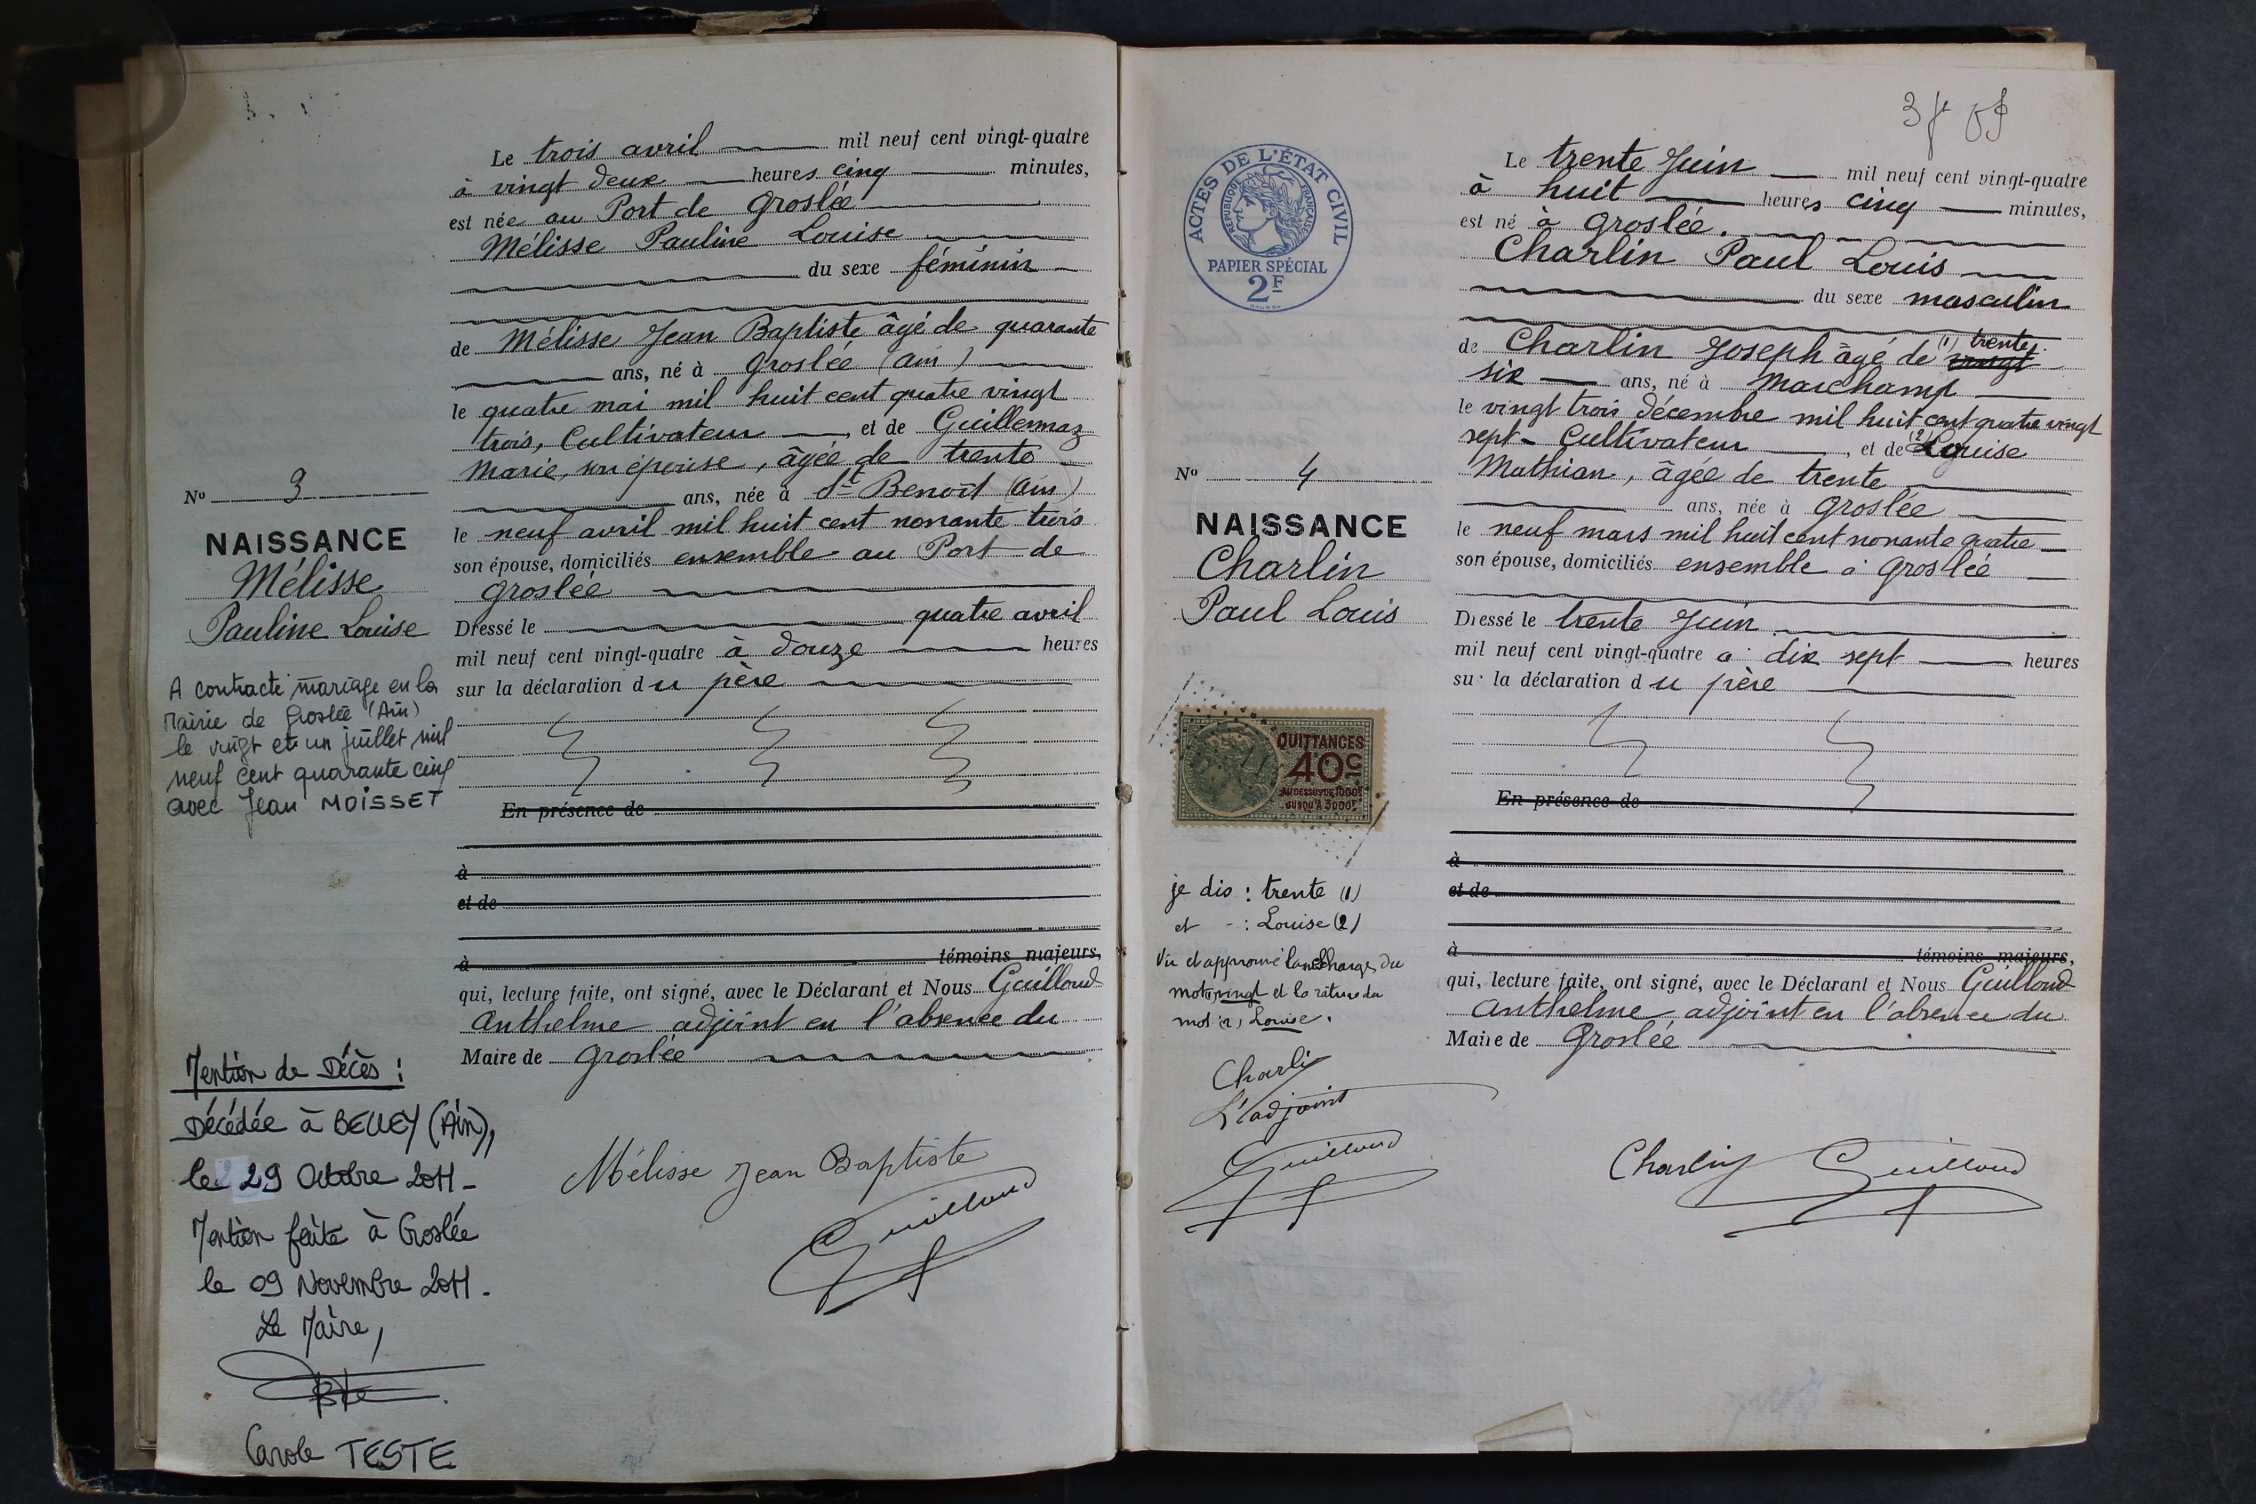 Le trois avril mil neuf cent vingt-quatre
à vingt deux heures cinq minutes,
est née au Port de Groslée
Mélisse Pauline Louise
du sexe féminin
de Mélisse Jean Baptiste âgé de quarante
ans, né à Groslée (Ain)
le quatre mai mil huit cent quatre vingt
trois, Cultivateur, et de Guillermaz
Marie, son épouse, âgée de trente
ans, née à St Benoît (Ain)
le neuf avril mil huit cent nonante trois
son épouse, domiciliés ensemble au Port de
Groslée
Dressé le quatre avril
mil neuf cent vingt-quatre à douze heures
sur la déclaration du père
En présence de
à
et de
à témoins majeurs,
qui, lecture faite, ont signé, avec le Déclarant et Nous Guilloud
Anthelme adjoint en l'absence du
Maire de Groslée
Mélisse Jean Baptiste
Guilloud
No 3
NAISSANCE
Mélisse
Pauline Louise
A contracté mariage en la
Mairie de Groslée (Ain)
le vingt et un juillet mil
neuf cent quarante cinq
avec Jean MOISSET
Mention de Décès :
Décédée à BELLEY (Ain),
le 29 Octobre 2011 -
Mention faite à Groslée
le 09 Novembre 2011.
Le Maire,
Carole TESTE
ACTES DE L'ÉTAT CIVIL
RÉPUBLIQUE FRANÇAISE
PAPIER SPÉCIAL
2F
Le trente Juin mil neuf cent vingt-quatre
à huit heures cinq minutes,
est né à Groslée.
Charlin Paul Louis
du sexe masculin
de Charlin Joseph âgé de (1) trente vingt
six ans, né à Marchamp
le vingt trois décembre mil huit cent quatre vingt
sept - Cultivateur, et de (2) Louise
Mathian, âgée de trente
ans, née à Groslée
le neuf mars mil huit cent nonante quatre
son épouse, domiciliés ensemble à Groslée
Dressé le trente Juin
mil neuf cent vingt-quatre à dix sept heures
sur la déclaration du père
En présence de
à
et de
à témoins majeurs,
qui, lecture faite, ont signé, avec le Déclarant et Nous Guilloud
Anthelme adjoint en l'absence du
Maire de Groslée
Charlin Guilloud
No 4
NAISSANCE
Charlin
Paul Louis
QUITTANCES
40c
AU DESSUS DE 1000F
JUSQU'À 3000F
je dis : trente (1)
et - : Louise (2)
Vu et approuvé la surcharge du
mot vingt et la rature du
mot (2) Louise.
Charlin
L'adjoint
Guilloud